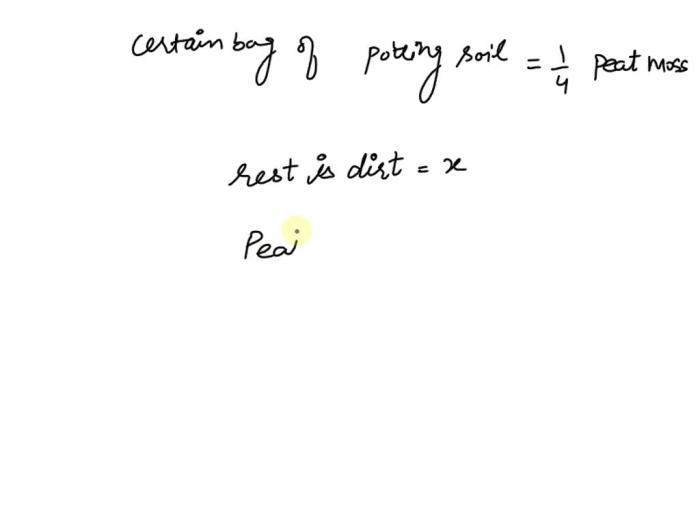 certain bag of potting soil = 1/4 Peat moss
rest is dirt = x
Pea